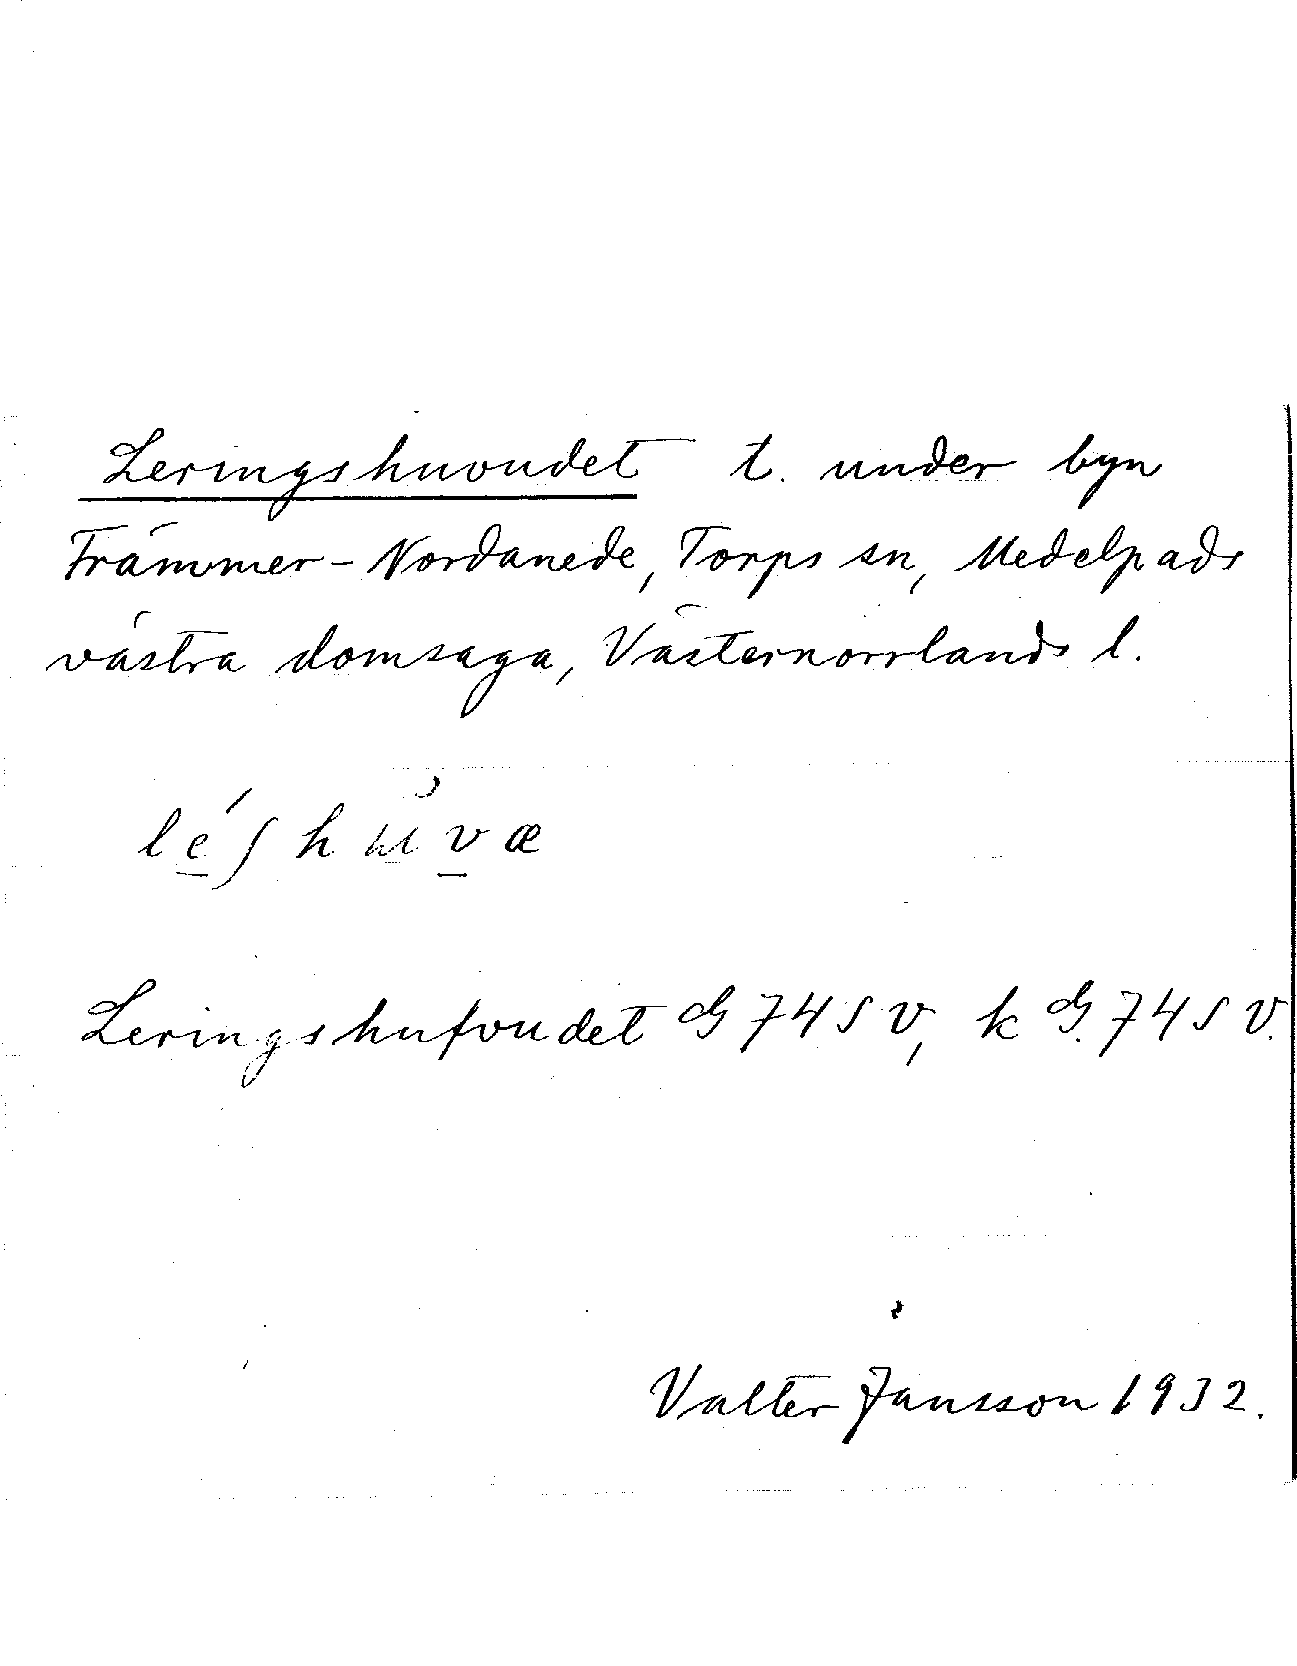 Leringshuvudet t. under byn
Främmer-Nordanede, Torps sn, Medelpads
västra domsaga, Västernorrlands l.
Leringshufvudet G 74 S V, k G. 74 S V.
Valter Jansson 1932.